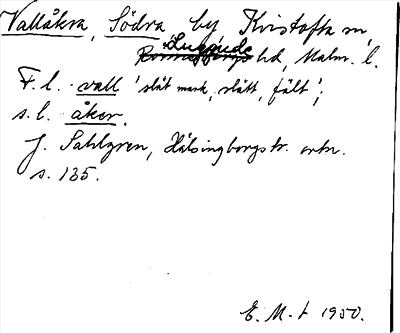 Vallåkra, Södra by Kvistofta sn,
Luggude
hd, Malm. l.
F. l. vall 'slät mark, slätt, fält';
s. l. åker.
J. Sahlgren, Hälsingborgstr. ortn.
s. 135.
E. M-t 1950.